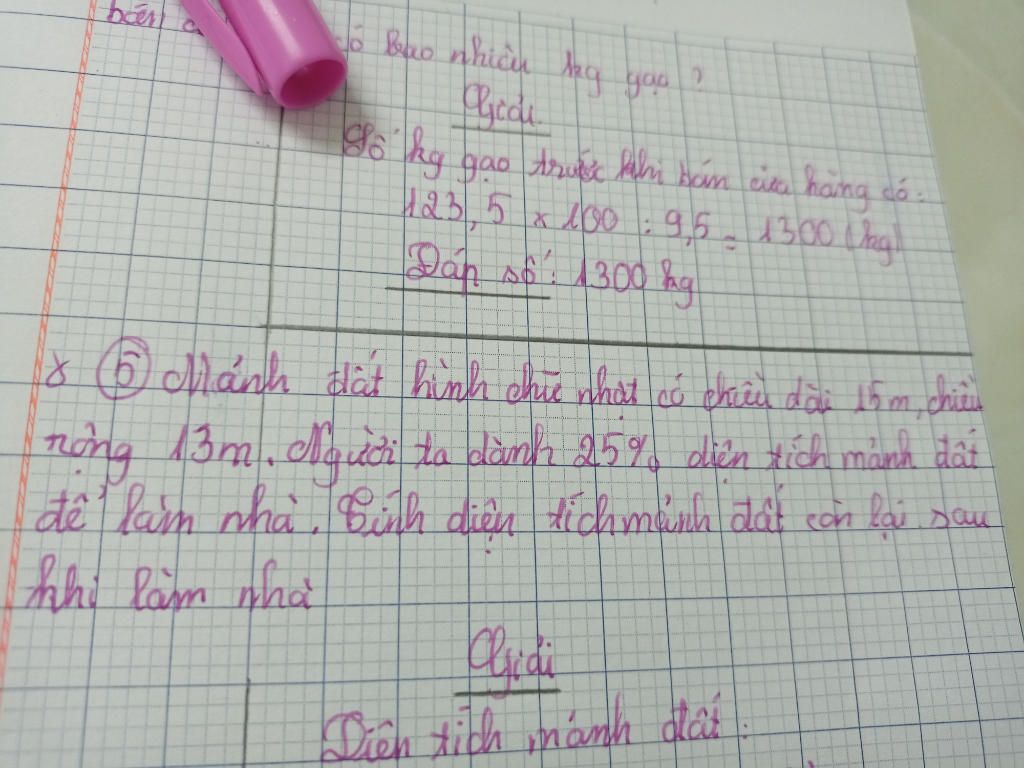 bán có bao nhiêu kg gạo ?
Giải
Số kg gạo trước khi bán cửa hàng có :
123,5 x 100 : 9,5 = 1300 (kg)
Đáp số : 1300 kg
5 Mảnh đất hình chữ nhật có chiều dài 15 m, chiều
rộng 13m. Người ta dành 25% diện tích mảnh đất
để làm nhà. Tính diện tích mảnh đất còn lại sau
khi làm nhà
Giải
Diện tích mảnh đất :